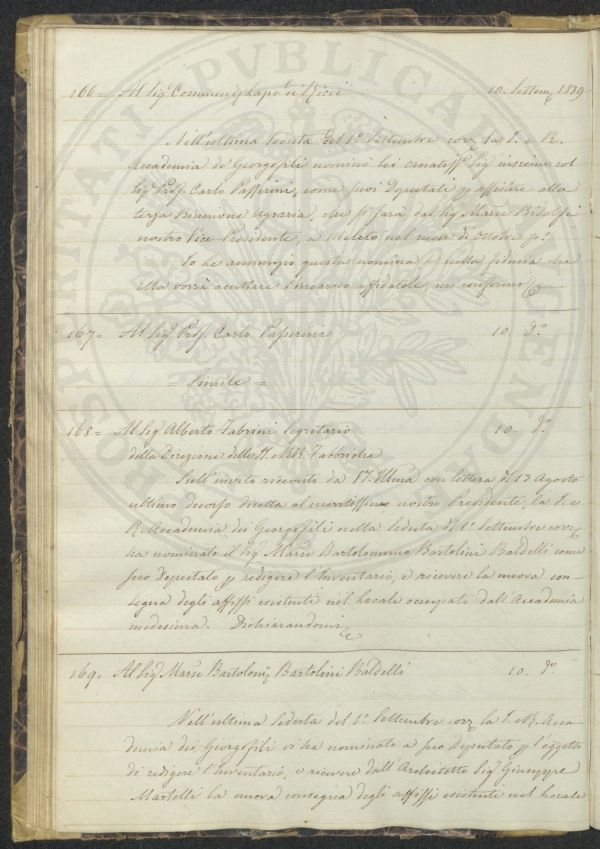 166= Al Sig.r Commend.e Lapo de' Ricci 10. Settem. 1839
Nell'ultima Seduta del 1.o Settembre corr.e la I. e R.
Accademia de' Georgofili nominò Lei ornatiss.o Sig.r insieme col
Sig.r Prof. Carlo Passerini, come suoi Deputati p assistere alla
terza Riunione agraria, che si farà dal Sig.r March. Ridolfi
nostro Vice-Presidente, a Meleto nel mese di Ottobre p.o
Io Le annunzio questa nomina, e nella fiducia che
Ella vorrà accettare l'incarico affidatole, mi confermo
167= Al Sig.r Prof. Carlo Passerini 10. d.o
= Simile =
168= Al Sig.r Alberto Fabrini Segretario 10. d.o
della Direzione delle II. e RR. Fabbriche
Sull'invito ricevuto da VS. Illma con lettera d. 13 Agosto
ultimo decorso diretta al meritissimo nostro Presidente, la I. e
R. Accademia dei Georgofili nella Seduta d. 1.o Settembre corr.e
ha nominato il Sig.r March. Bartolommeo Bartolini Baldelli come
suo Deputato p redigere l'Inventario, e ricevere la nuova con-
segna degli affissi esistenti nel Locale occupato dall'Accademia
medesima. Dichiarandomi
169= Al Sig.r March. Bartolom. Bartolini Baldelli 10. d.o
Nell'ultima Seduta del 1.o Settembre corr.e la I. e R. Acca-
demia dei Georgofili vi ha nominato a suo Deputato p l'oggetto
di redigere l'Inventario, e ricevere dall'Architetto Sig.r Giuseppe
Martelli la nuova consegna degli affissi esistenti nel Locale